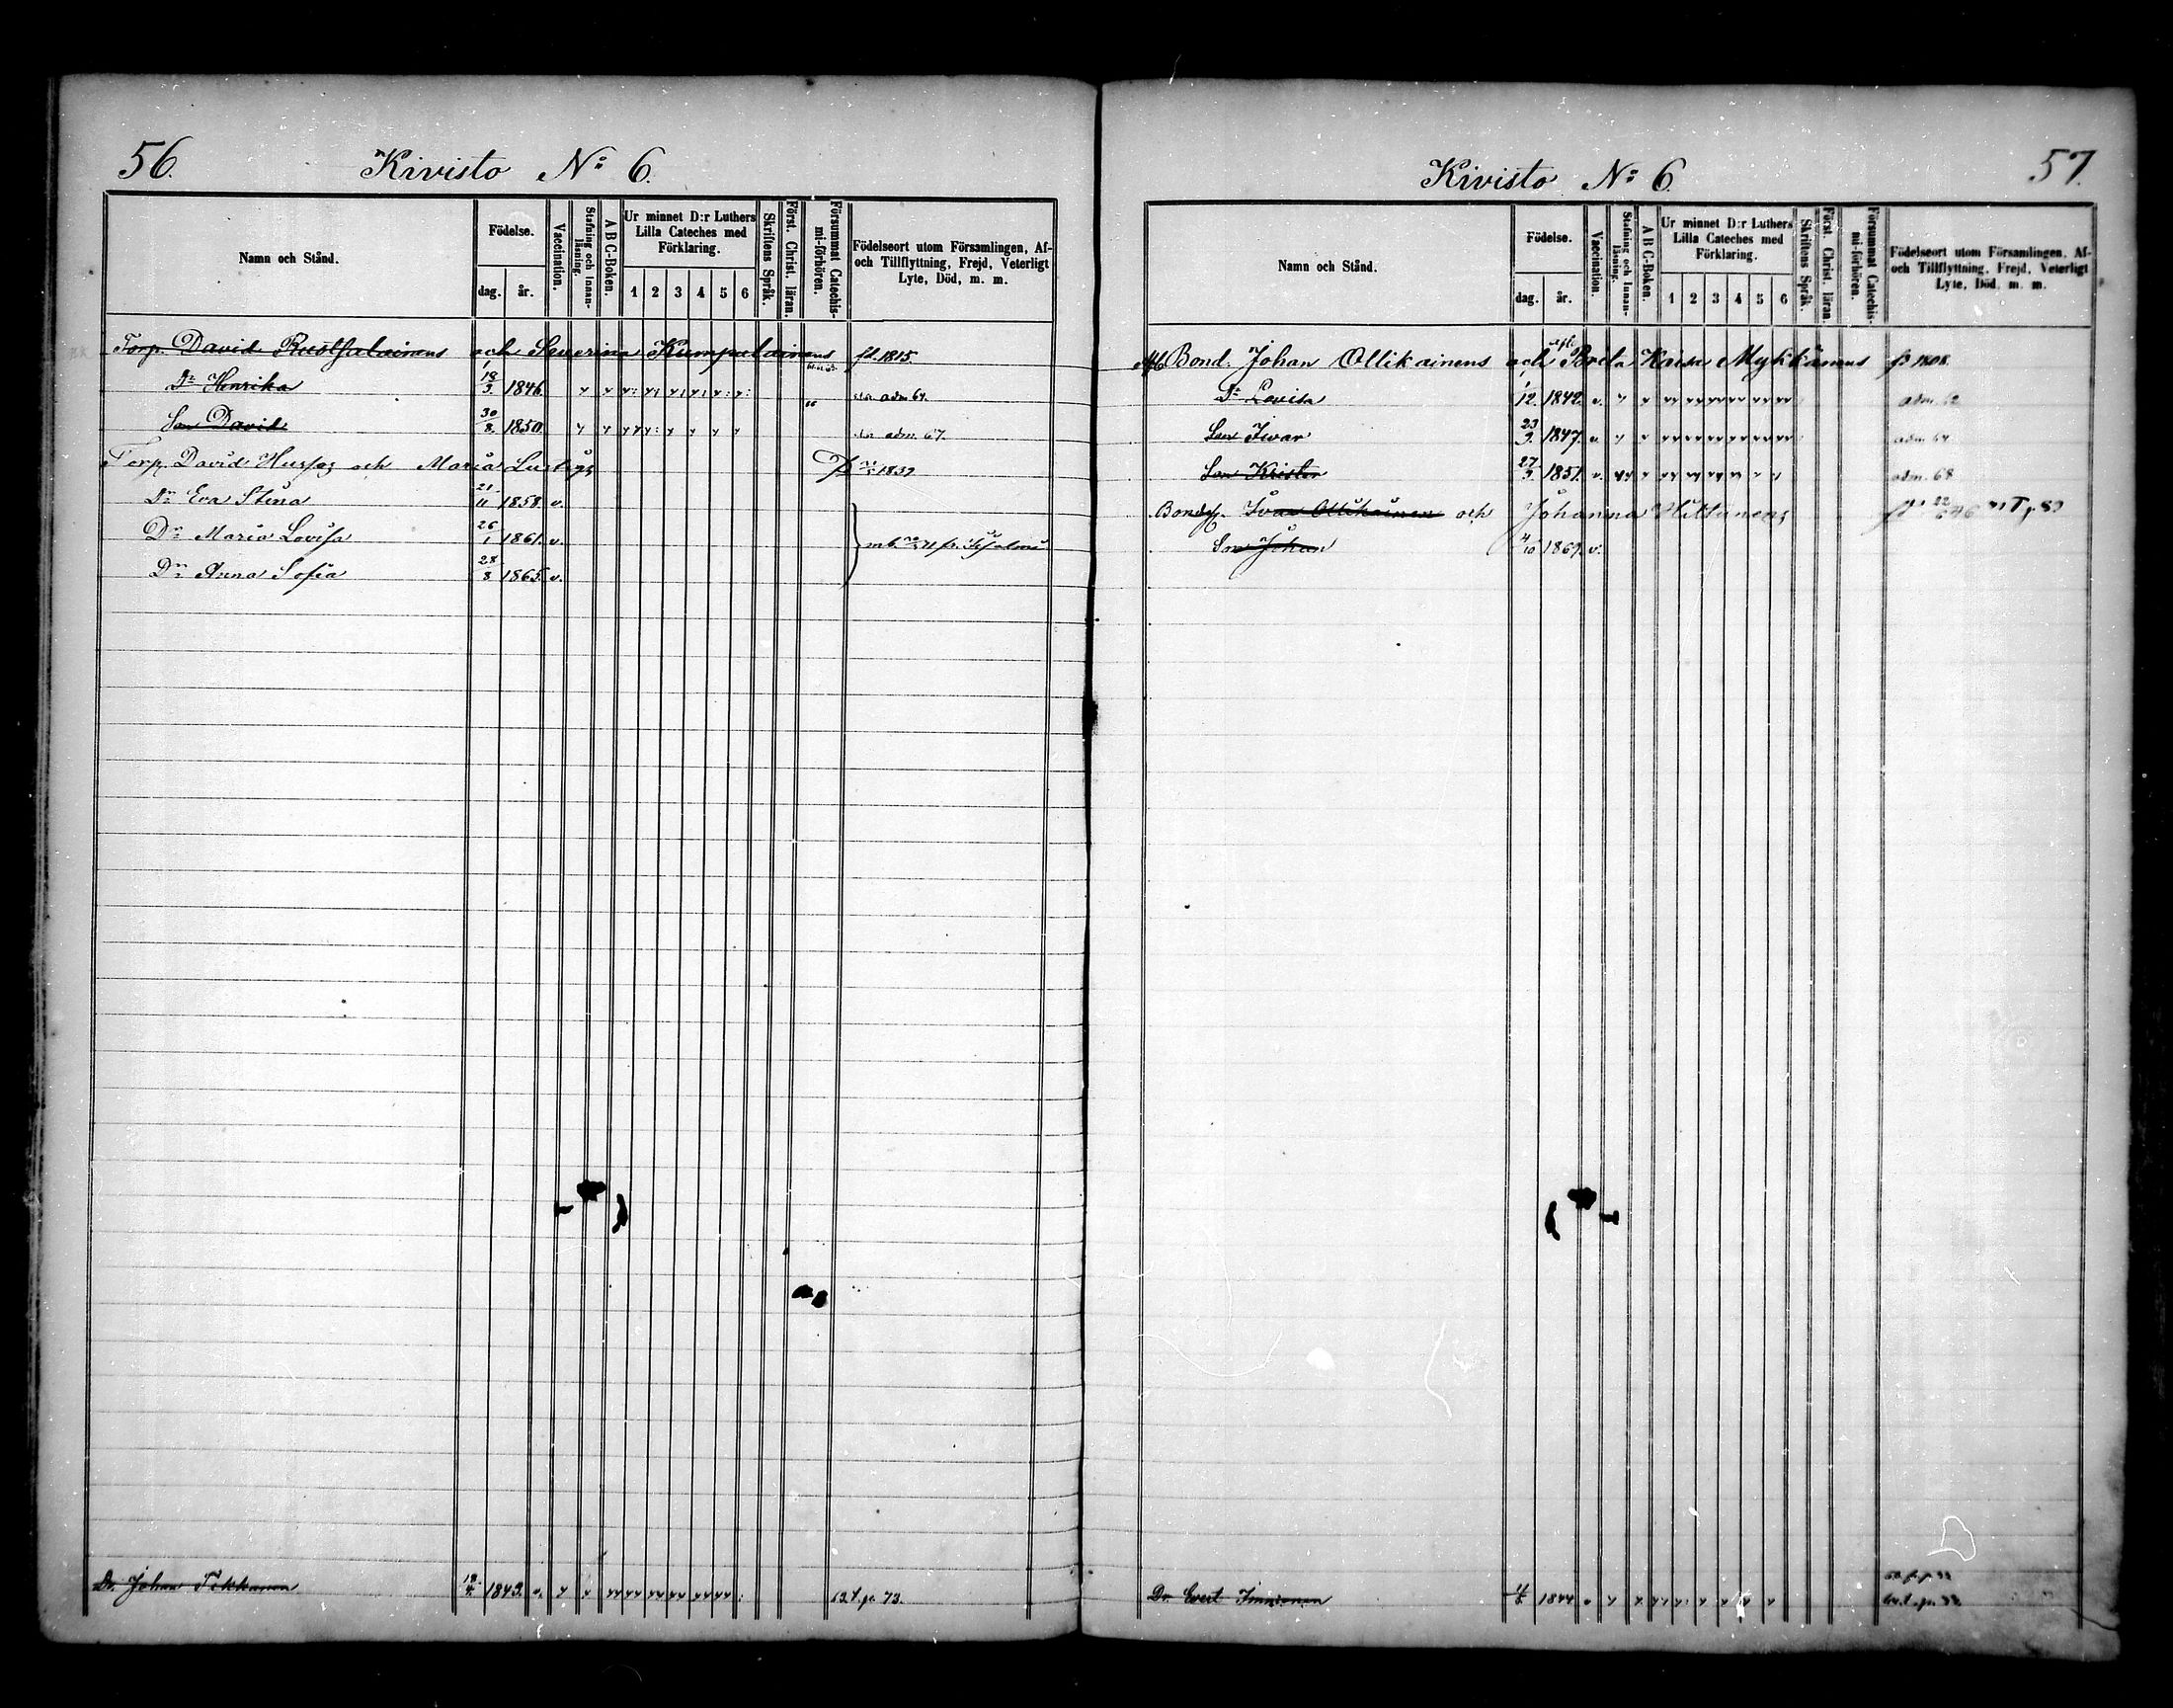 56.
Kivisto Nº 6.
Namn och Stånd.
Födelse.
dag.
år.
Vaccination.
Stafning och Innan-
läsning.
A B C-Boken.
Ur minnet D:r Luthers
Lilla Cateches med
Förklaring.
1 2 3 4 5 6
Skriftens Språk.
Först. Christ. läran.
Försummat Catechis-
mi-förhören.
Födelseort utom Församlingen, Af-
och Tillflyttning, Frejd, Veterligt
Lyte, Död, m. m.
Torp. David och Severina Kumpulainens fd. 1815
Dr Henrika 18/3 1846. adm 64.
Son David 30/8 1850 adm. 67.
Torp. David Huss och Maria 1837
Dr Eva Stina 21/11 1858. v.
Dr Maria Lovisa 26/1 1861. v. mb. 71 fr.
Dr Anna Sofia 28/8 1865. v.
Dr. Johan Tikkanen 18/4 1843. v. 63 t. p. 73.
Kivisto Nº 6.
57.
Namn och Stånd.
Födelse.
dag.
år.
Vaccination.
Stafning och Innan-
läsning.
A B C-Boken.
Ur minnet D:r Luthers
Lilla Cateches med
Förklaring.
1 2 3 4 5 6
Skriftens Språk.
Först. Christ. läran.
Försummat Catechis-
mi-förhören.
Födelseort utom Församlingen, Af-
och Tillflyttning, Frejd, Veterligt
Lyte, Död, m. m.
Afl. Bond. Johan Ollikainens och Afl. Brita Kaisa Mykkänens fd 1808.
Dr Lovisa 1/12 1842. v. adm. 62
Son Ivar 23/3 1847. v. adm. 64
Son Krister 27/3 1851. v. adm. 68
Ivar Ollikainen och Johanna Hiltunens
Son Johan 4/10 1869. v.
Dr. Evert 4/8 1844